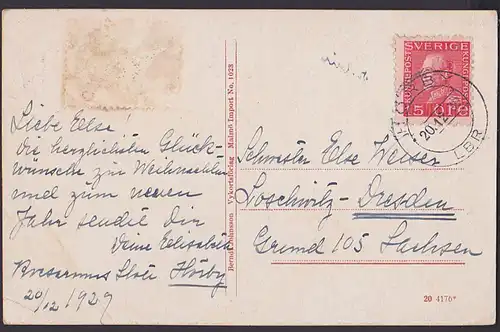 Liebe Else!
die herzlichsten Glück-
wünsche zum Weihnachten
und zum neuen
Jahr sendet Dir
Deine Elisabeth
Hörby
20/12 1929
Bernd Johnsson Vykortsförlag Malmö Import No. 1028
SVERIGE
15 ÖRE
20.12
LBR
Schwester Else Weiser
Loschwitz-Dresden
Grund 105 Sachsen
20 4176*